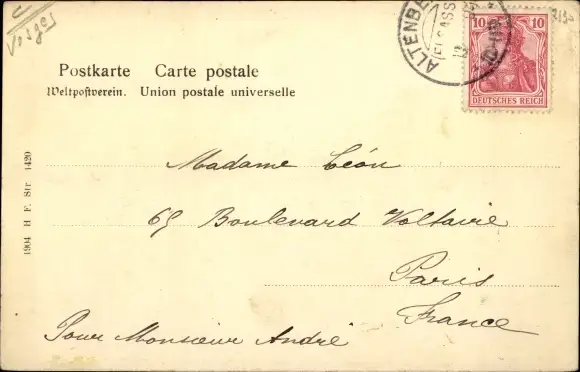 Vosges
Postkarte Carte postale
Weltpostverein. Union postale universelle
ALTENBE
(ELSASS
12
10 10
DEUTSCHES REICH
1904 H. F. Str. 1420
Madame Léon
69 Boulevard Voltaire
Paris
France
Pour Monsieur André